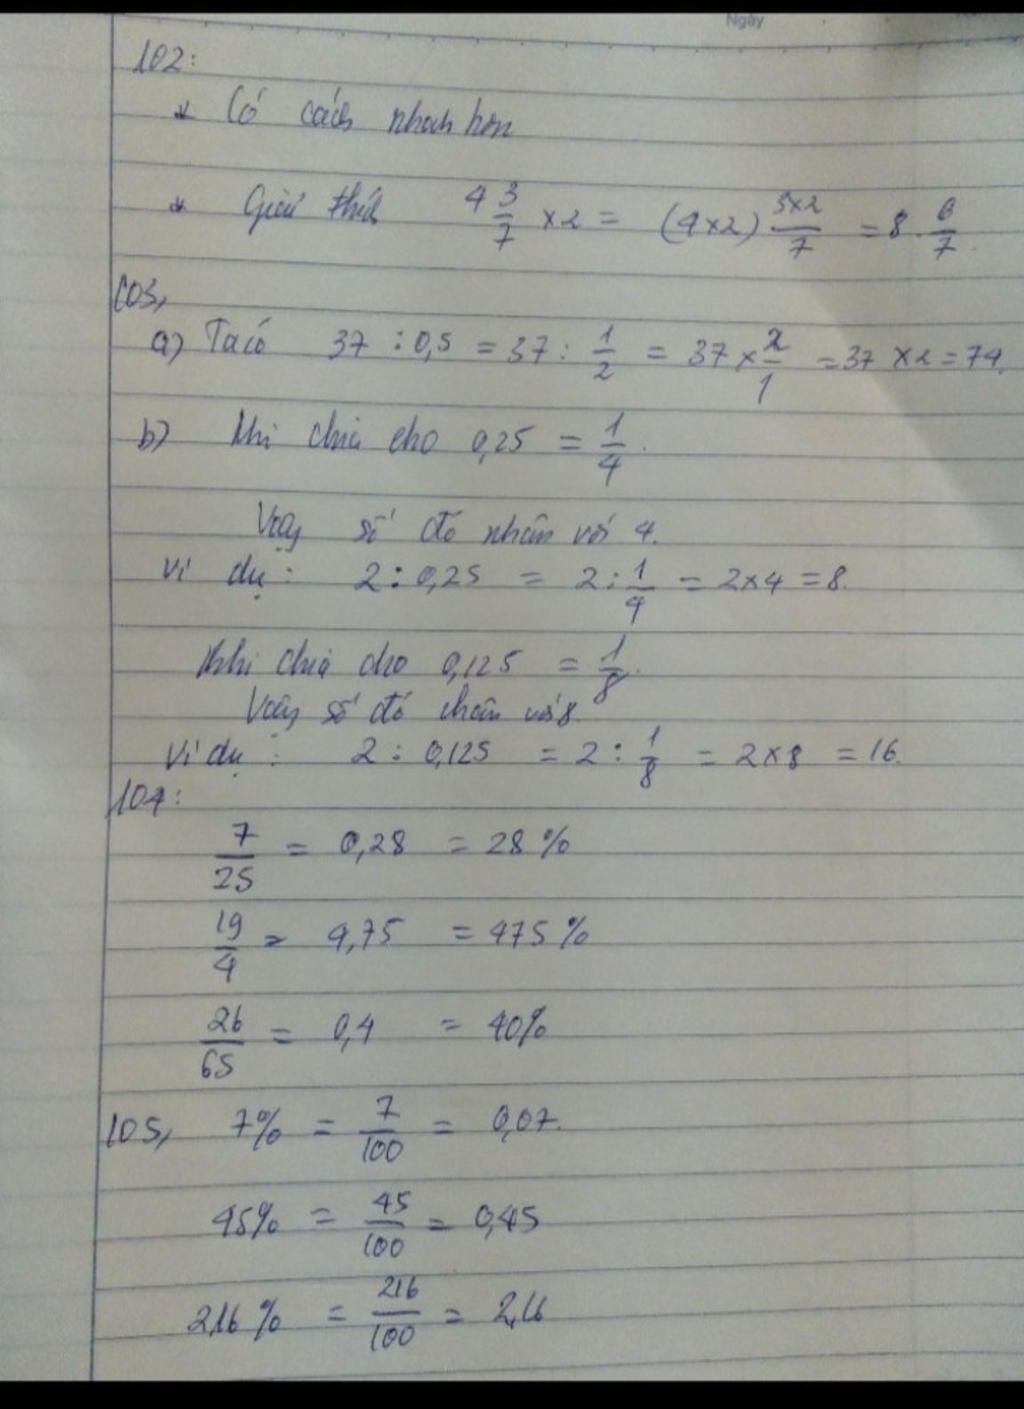 Ngày
102:
* Có cách nhanh hơn
* Giải thích 4 3/7 × 2 = (4×2) 3×2/7 = 8 6/7
103,
a) Ta có 37 : 0,5 = 37 : 1/2 = 37 × 2/1 = 37 × 2 = 74.
b) Khi chia cho 0,25 = 1/4.
Vậy số đó nhân với 4.
Ví dụ : 2 : 0,25 = 2 : 1/4 = 2×4 = 8.
Khi chia cho 0,125 = 1/8.
Vậy số đó nhân với 8.
Ví dụ : 2 : 0,125 = 2 : 1/8 = 2×8 = 16.
104:
7/25 = 0,28 = 28 %
19/4 = 4,75 = 475 %
26/65 = 0,4 = 40%
105, 7% = 7/100 = 0,07.
45% = 45/100 = 0,45
216 % = 216/100 = 2,16